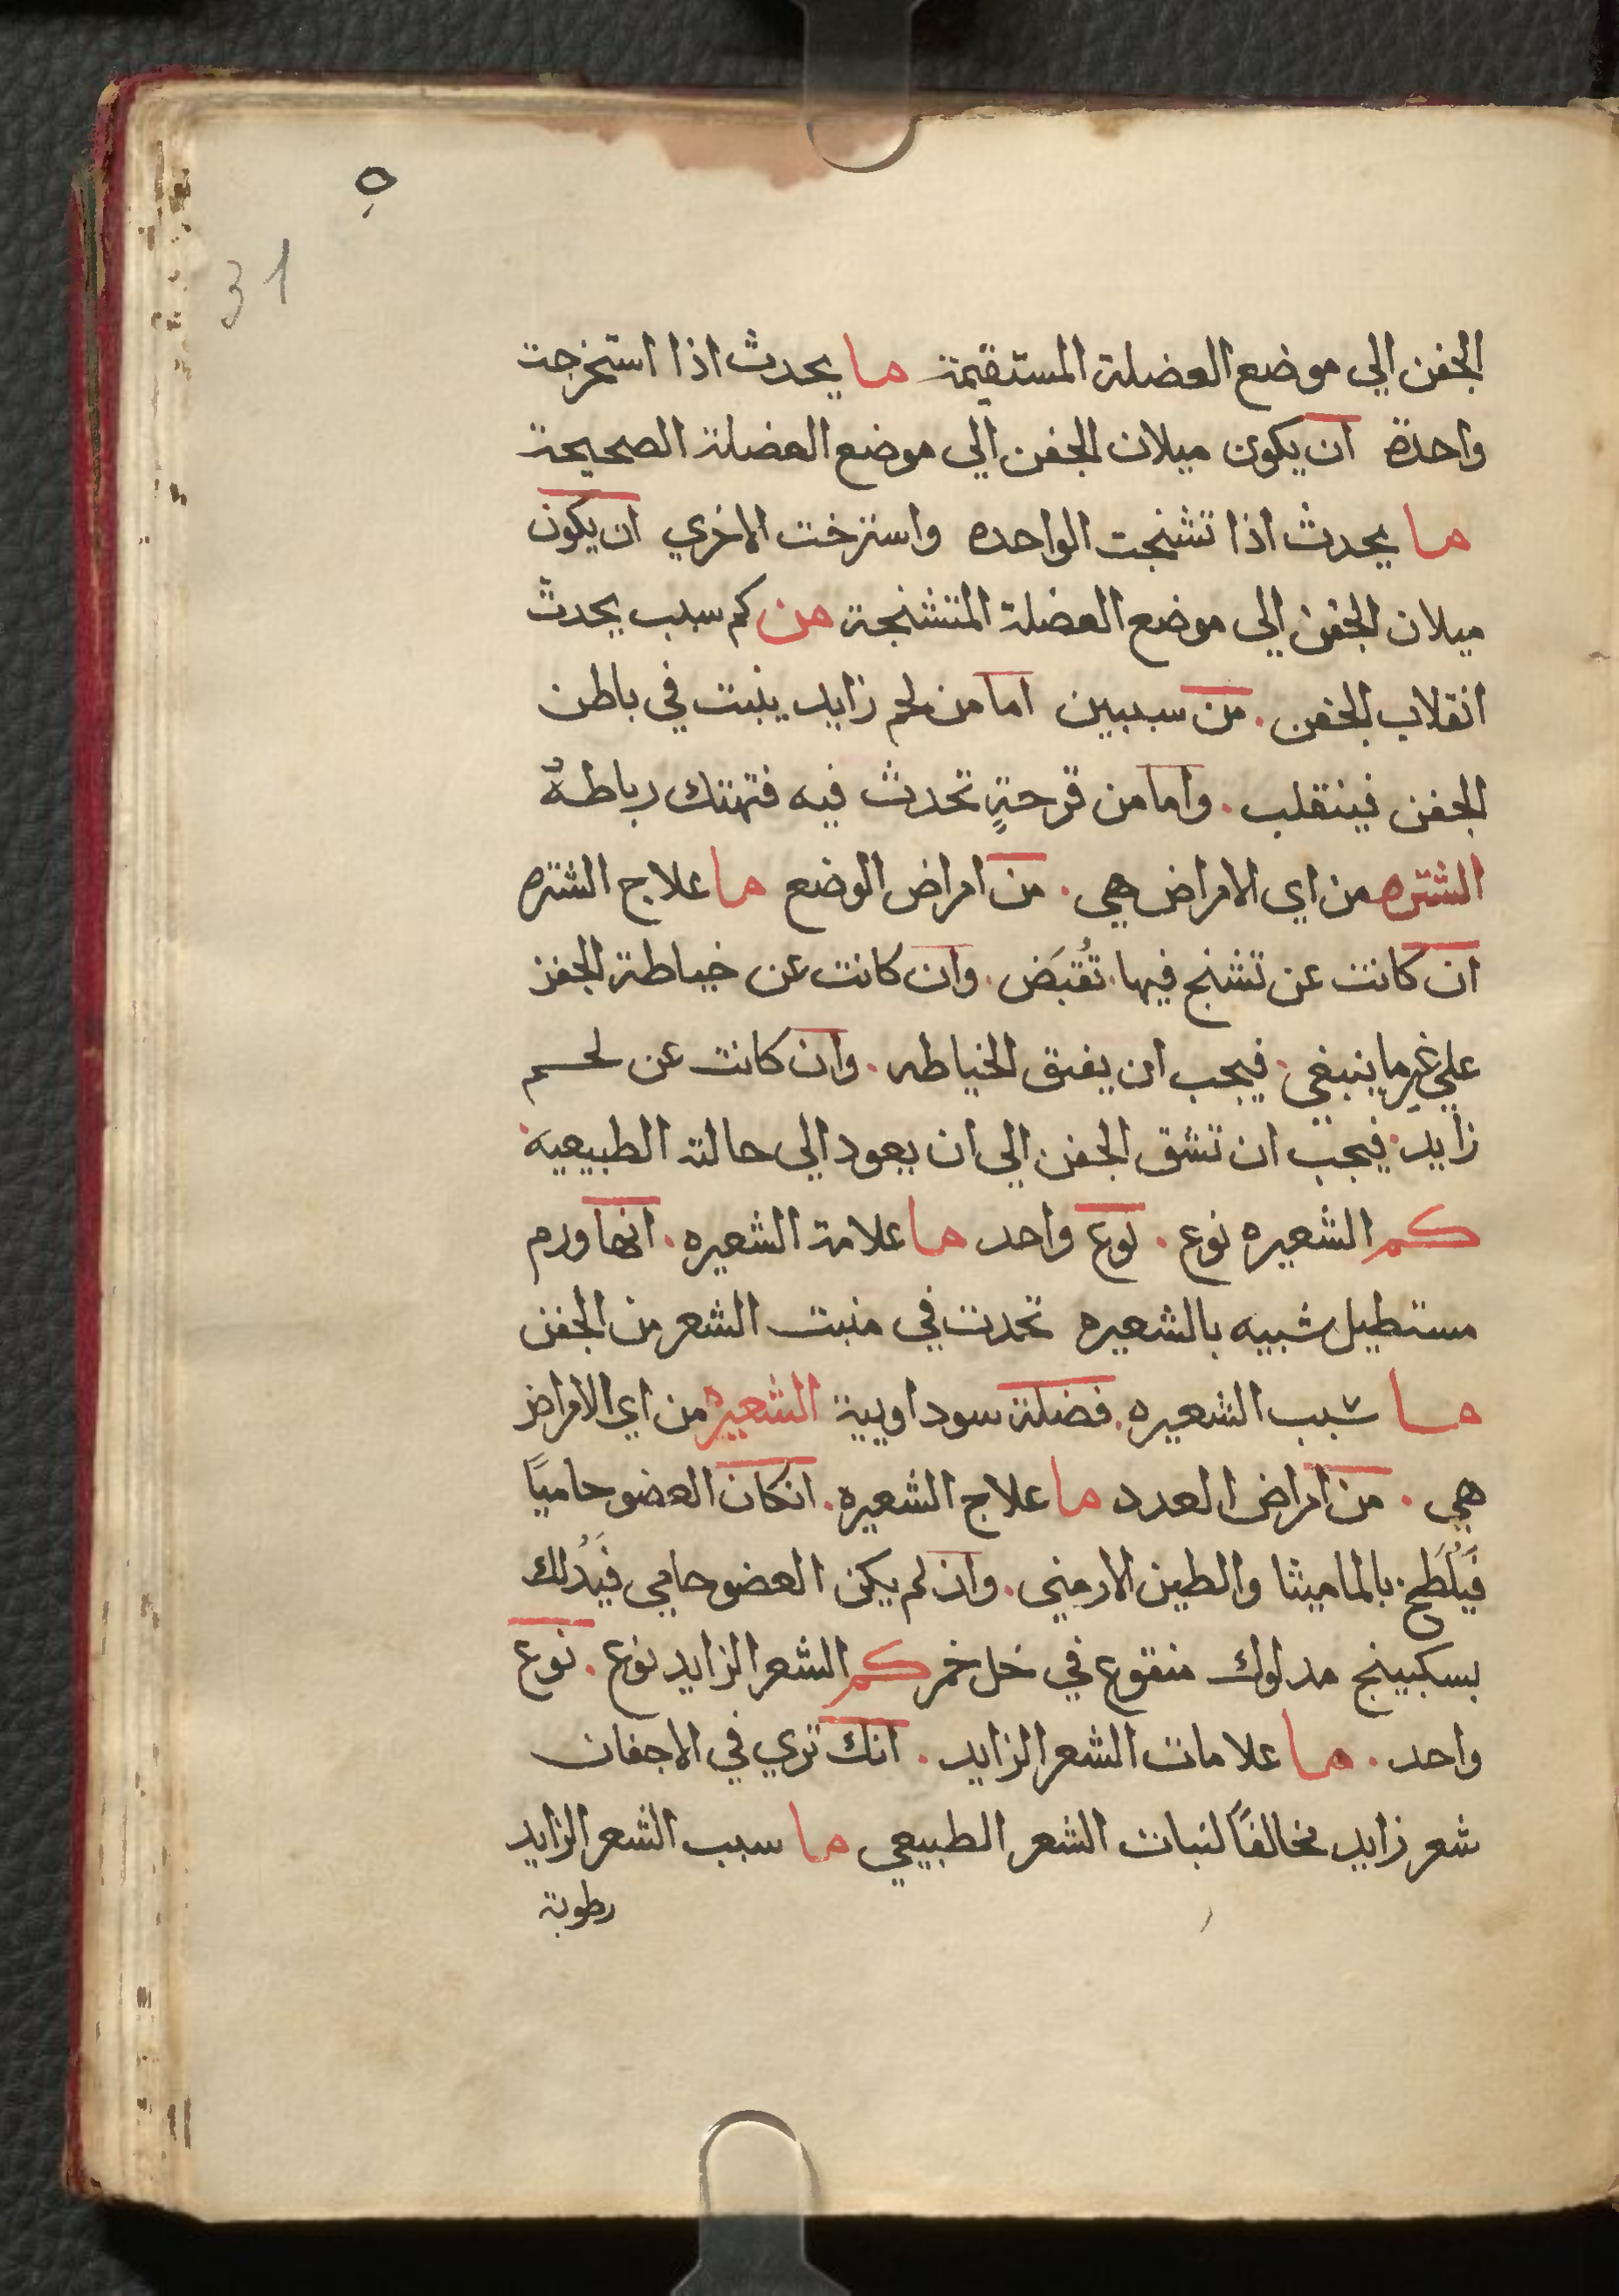 ه
31
الجفن الي موضع العضلة المستقيمة ما يحدث اذا استخرجت
واحدة ان يكون ميلان الجفن الي موضع العضلة الصحيحة
ما يحدث اذا تشنجت الواحده واسترخت الاخري ان يكون
ميلان الجفن الي موضع العضلة المتشنجة من كم سبب يحدث
انقلاب الجفن. من سببين اما من لحم زايد ينبت في باطن
الجفن فينقلب. واما من قرحةٍ تحدث فيه فتهتك رباطهُ
الشتره من اي الامراض هي. من امراض الوضع ما علاج الشتره
ان كانت عن تشنج فيها. تُقبَض. وان كانت عن خياطة الجفن
علي غير ما ينبغي. فيجب ان يفتق الخياطه. وان كانت عن لحم
زايد. فيجب ان تشق الجفن الي ان يعود الي حالته الطبيعيه.
كم الشعيره نوع. نوع واحد ما علامة الشعيره. انها ورم
مستطيل شبيه بالشعيره تحدث في منبت الشعر من الجفن
ما سبب الشعيره. فضلة سوداويية الشعيره من اي الامراض
هي. من امراض العدد ما علاج الشعيره. انكان العضو حاميًا
فيُلَطخ بالماميثا والطين الارمني. وان لم يكن العضو حامي فيَدُلك
بسكبينج مدلوك منقوع في خل خمر كم الشعر الزايد نوع. نوع
واحد. ما علامات الشعر الزايد. انك تري في الاجفان
شعر زايد مخالفًا لنبات الشعر الطبيعي ما سبب الشعر الزايد
رطوبة